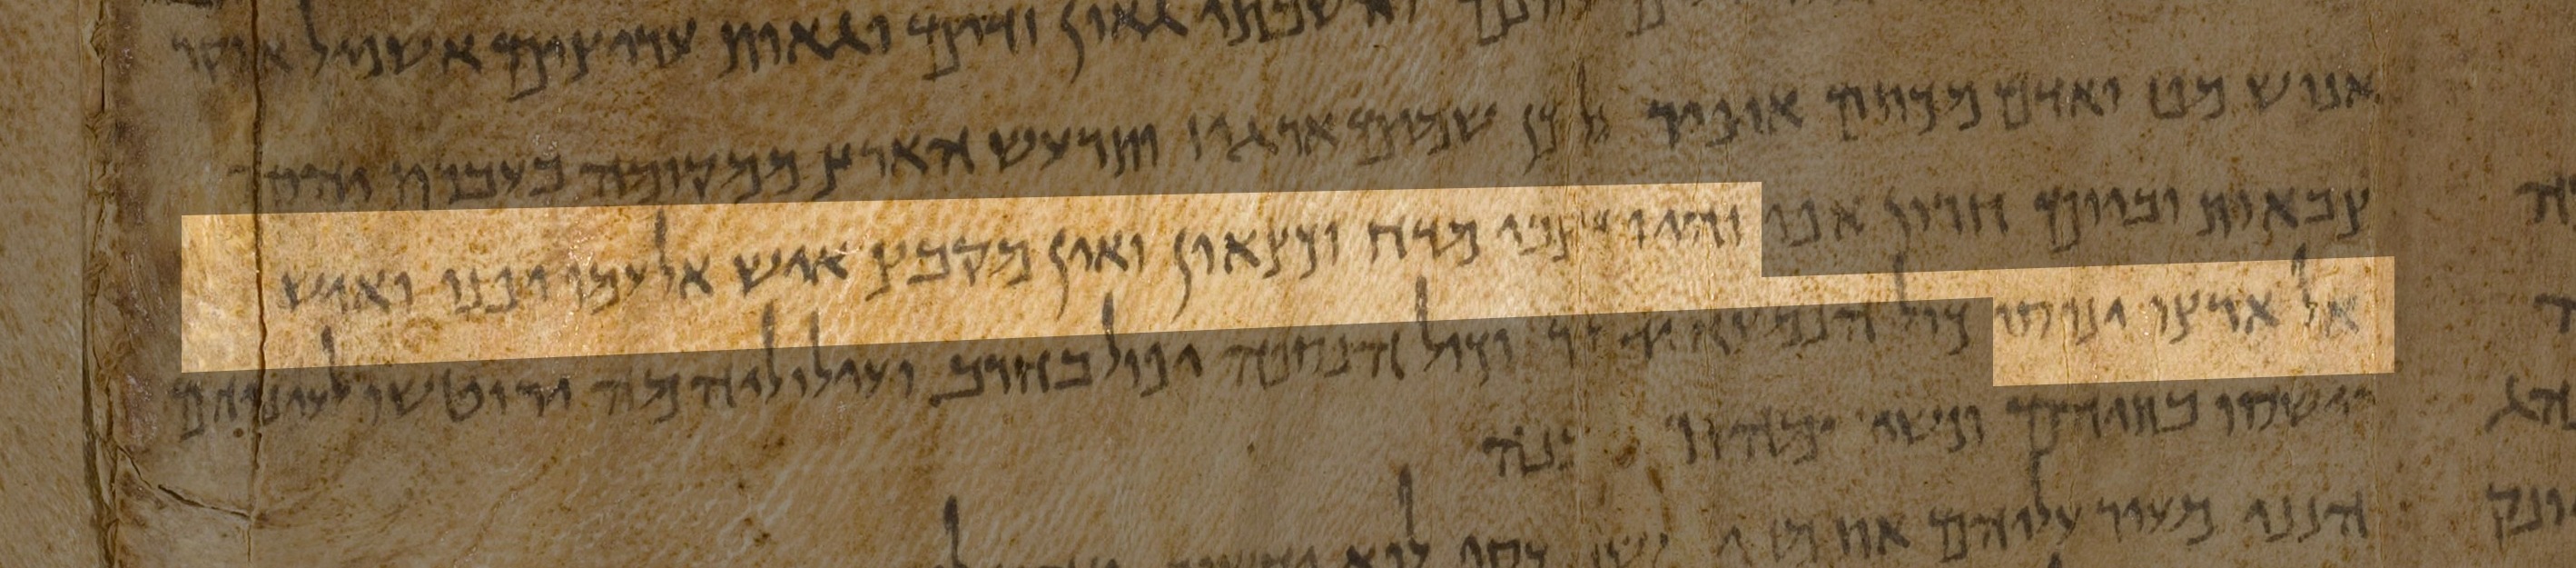 והשבתי גאון זדים וגאות עריצים אשפיל אוקר
אנוש מפז ואדם מכתם אופיר על כן שמים ארגיז ותרעש הארץ ממקומה בעברת יהוה
צבאות וביום חרון אפו והיו כצבי מדח וכצאון ואין מקבץ איש אל עמו יפנו ואיש
אל ארצו ינוסו כול הנמצא ידקר וכול הנספה יפול בחרב ועולוליהמה ירוטשו לעיניהם
ישסו בתיהם
הנני מעיר עליהם את